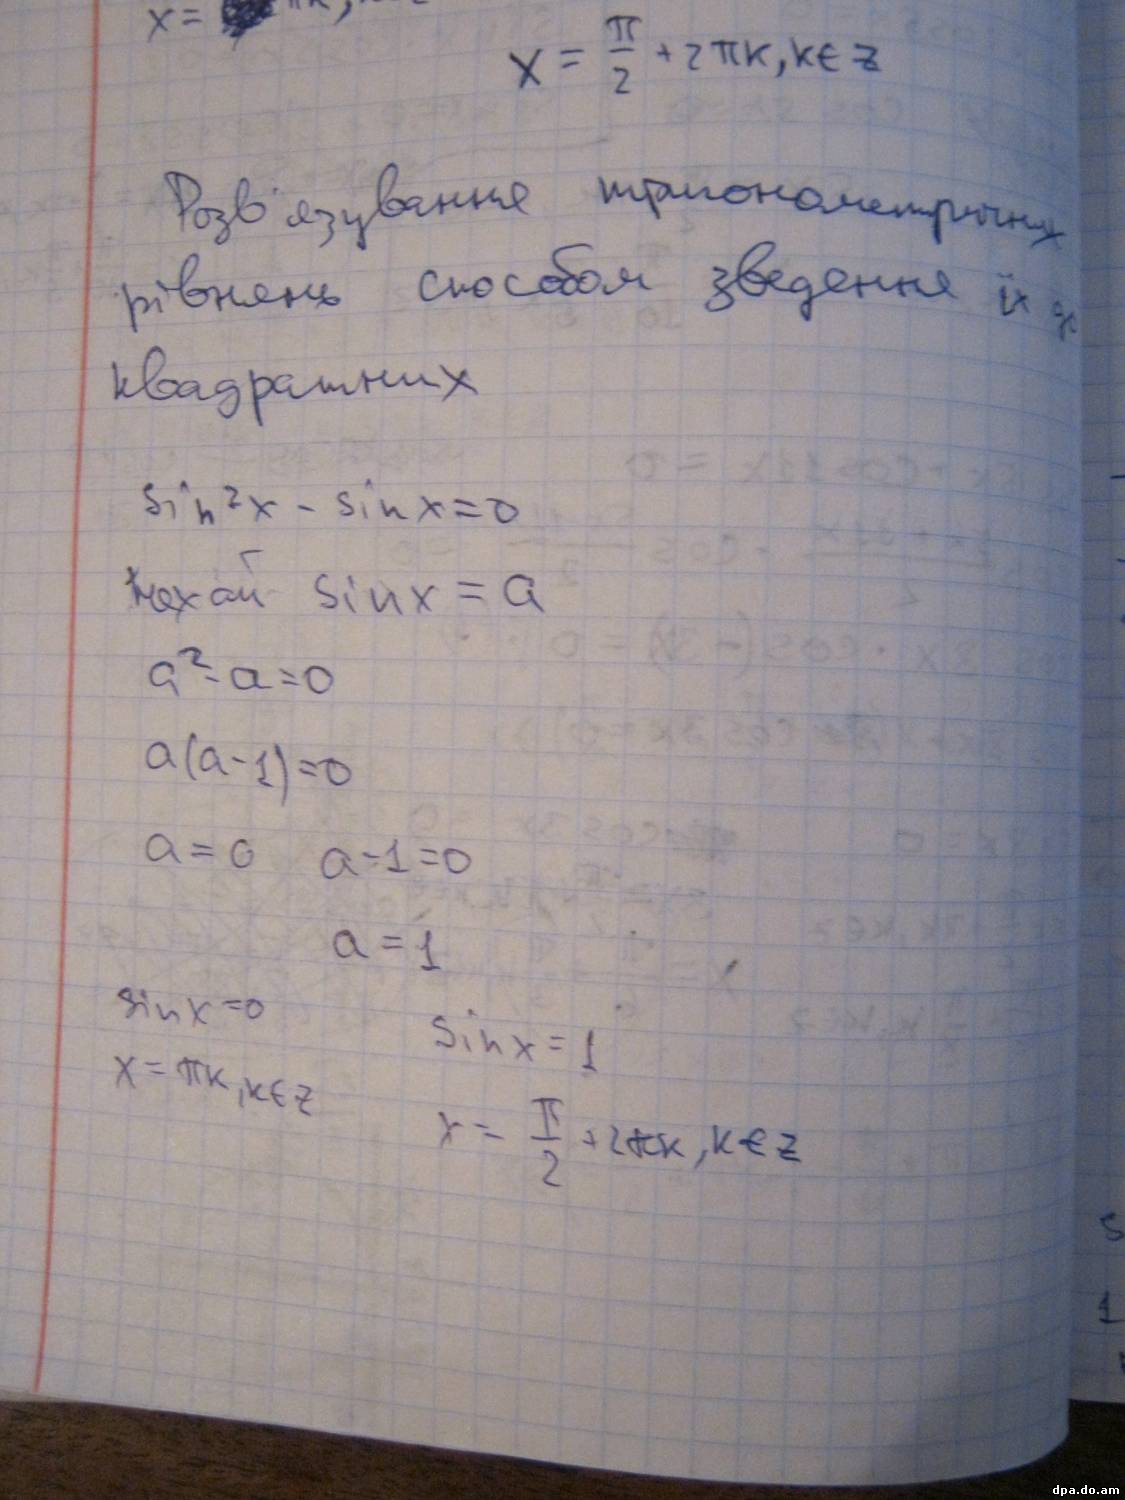 x = πk,
x = π/2 + 2πk, k∈z
Розв'язування тригонометричних
рівнянь способом зведення їх до
квадратних
sin²x - sinx=0
нехай sinx = a
a²-a=0
a(a-1)=0
a=0 a-1=0
a=1
sinx=0
sinx=1
x=πk, k∈z
x= π/2 +2πk, k∈z
s
1
dpa.do.am